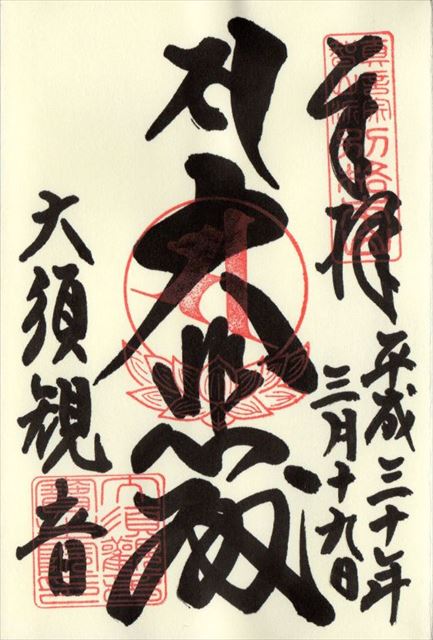 奉拝
平成三十年
三月十九日
大悲殿
大須観音